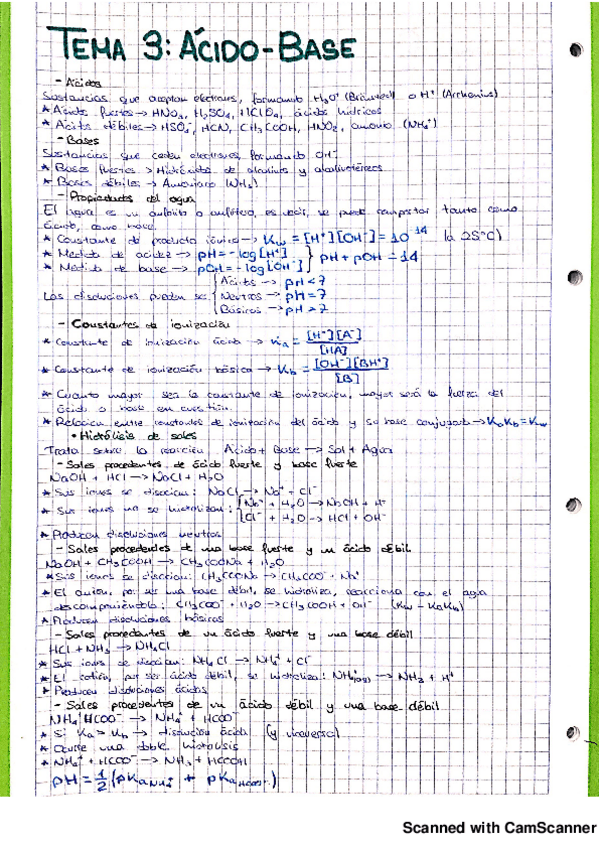 TEMA 3: ÁCIDO-BASE
- Ácidos
Sustancias que aceptan electrones, formando H₃O⁺ (Brönsted) o H⁺ (Arrhenius)
* Ácidos fuertes → HNO₃, H₂SO₄, HClO₄, ácidos hídricos
* Ácidos débiles → HSO₄⁻, HCN, CH₃COOH, HNO₂, amonio (NH₄⁺)
- Bases
Sustancias que ceden electrones, formando OH⁻
* Bases fuertes → Hidróxidos de alcalinos y alcalinotérreos
* Bases débiles → Amoniaco (NH₃)
- Propiedades del agua
El agua es un anfolito o anfótero, es decir, se puede comportar tanto como
ácido, como base.
* Constante de producto iónico → Kw = [H⁺][OH⁻] = 10⁻¹⁴ (a 25°C)
* Medida de acidez → pH = -log[H⁺] } pH + pOH = 14
* Medida de base → pOH = -log[OH⁻]
Ácidos → pH < 7
Las disoluciones pueden ser { Neutros → pH = 7
Básicos → pH > 7
- Constantes de ionización
* Constante de ionización ácida → Ka = [H⁺][A⁻] / [HA]
* Constante de ionización básica → Kb = [OH⁻][BH⁺] / [B]
* Cuanto mayor sea la constante de ionización, mayor será la fuerza del
ácido o base en cuestión.
* Relación entre constantes de ionización del ácido y su base conjugada → KaKb = Kw
• Hidrólisis de sales
Trata sobre la reacción Ácido + Base → Sal + Agua
- Sales procedentes de ácido fuerte y base fuerte
NaOH + HCl → NaCl + H₂O
* Sus iones se disocian: NaCl → Na⁺ + Cl⁻
* Sus iones no se hidrolizan: { Na⁺ + H₂O → NaOH + H⁺
Cl⁻ + H₂O → HCl + OH⁻
* Producen disoluciones neutras
- Sales procedentes de una base fuerte y un ácido débil
NaOH + CH₃COOH → CH₃COONa + H₂O
* Sus iones se disocian: CH₃COONa → CH₃COO⁻ + Na⁺
* El anión, por ser una base débil, se hidroliza, reacciona con el agua
descomponiéndola: CH₃COO⁻ + H₂O → CH₃COOH + OH⁻ (Kw = KaKb)
* Producen disoluciones básicas
- Sales procedentes de un ácido fuerte y una base débil
HCl + NH₃ → NH₄Cl
* Sus iones se disocian: NH₄Cl → NH₄⁺ + Cl⁻
* El catión, por ser ácido débil, se hidroliza: NH₄⁺(aq) → NH₃ + H⁺
* Producen disoluciones ácidas
- Sales procedentes de un ácido débil y una base débil
NH₄HCOO → NH₄⁺ + HCOO⁻
* Si Ka > Kb → disolución ácida (y viceversa)
* Ocurre una doble hidrólisis
* NH₄⁺ + HCOO⁻ → NH₃ + HCOOH
pH = 1/2 (pKa NH₄⁺ + pKa HCOOH)
Scanned with CamScanner